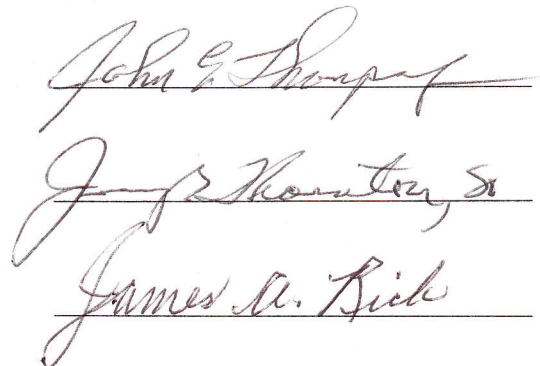 John E Thompson
Jerry B Thornton, Sr
James A. Rick